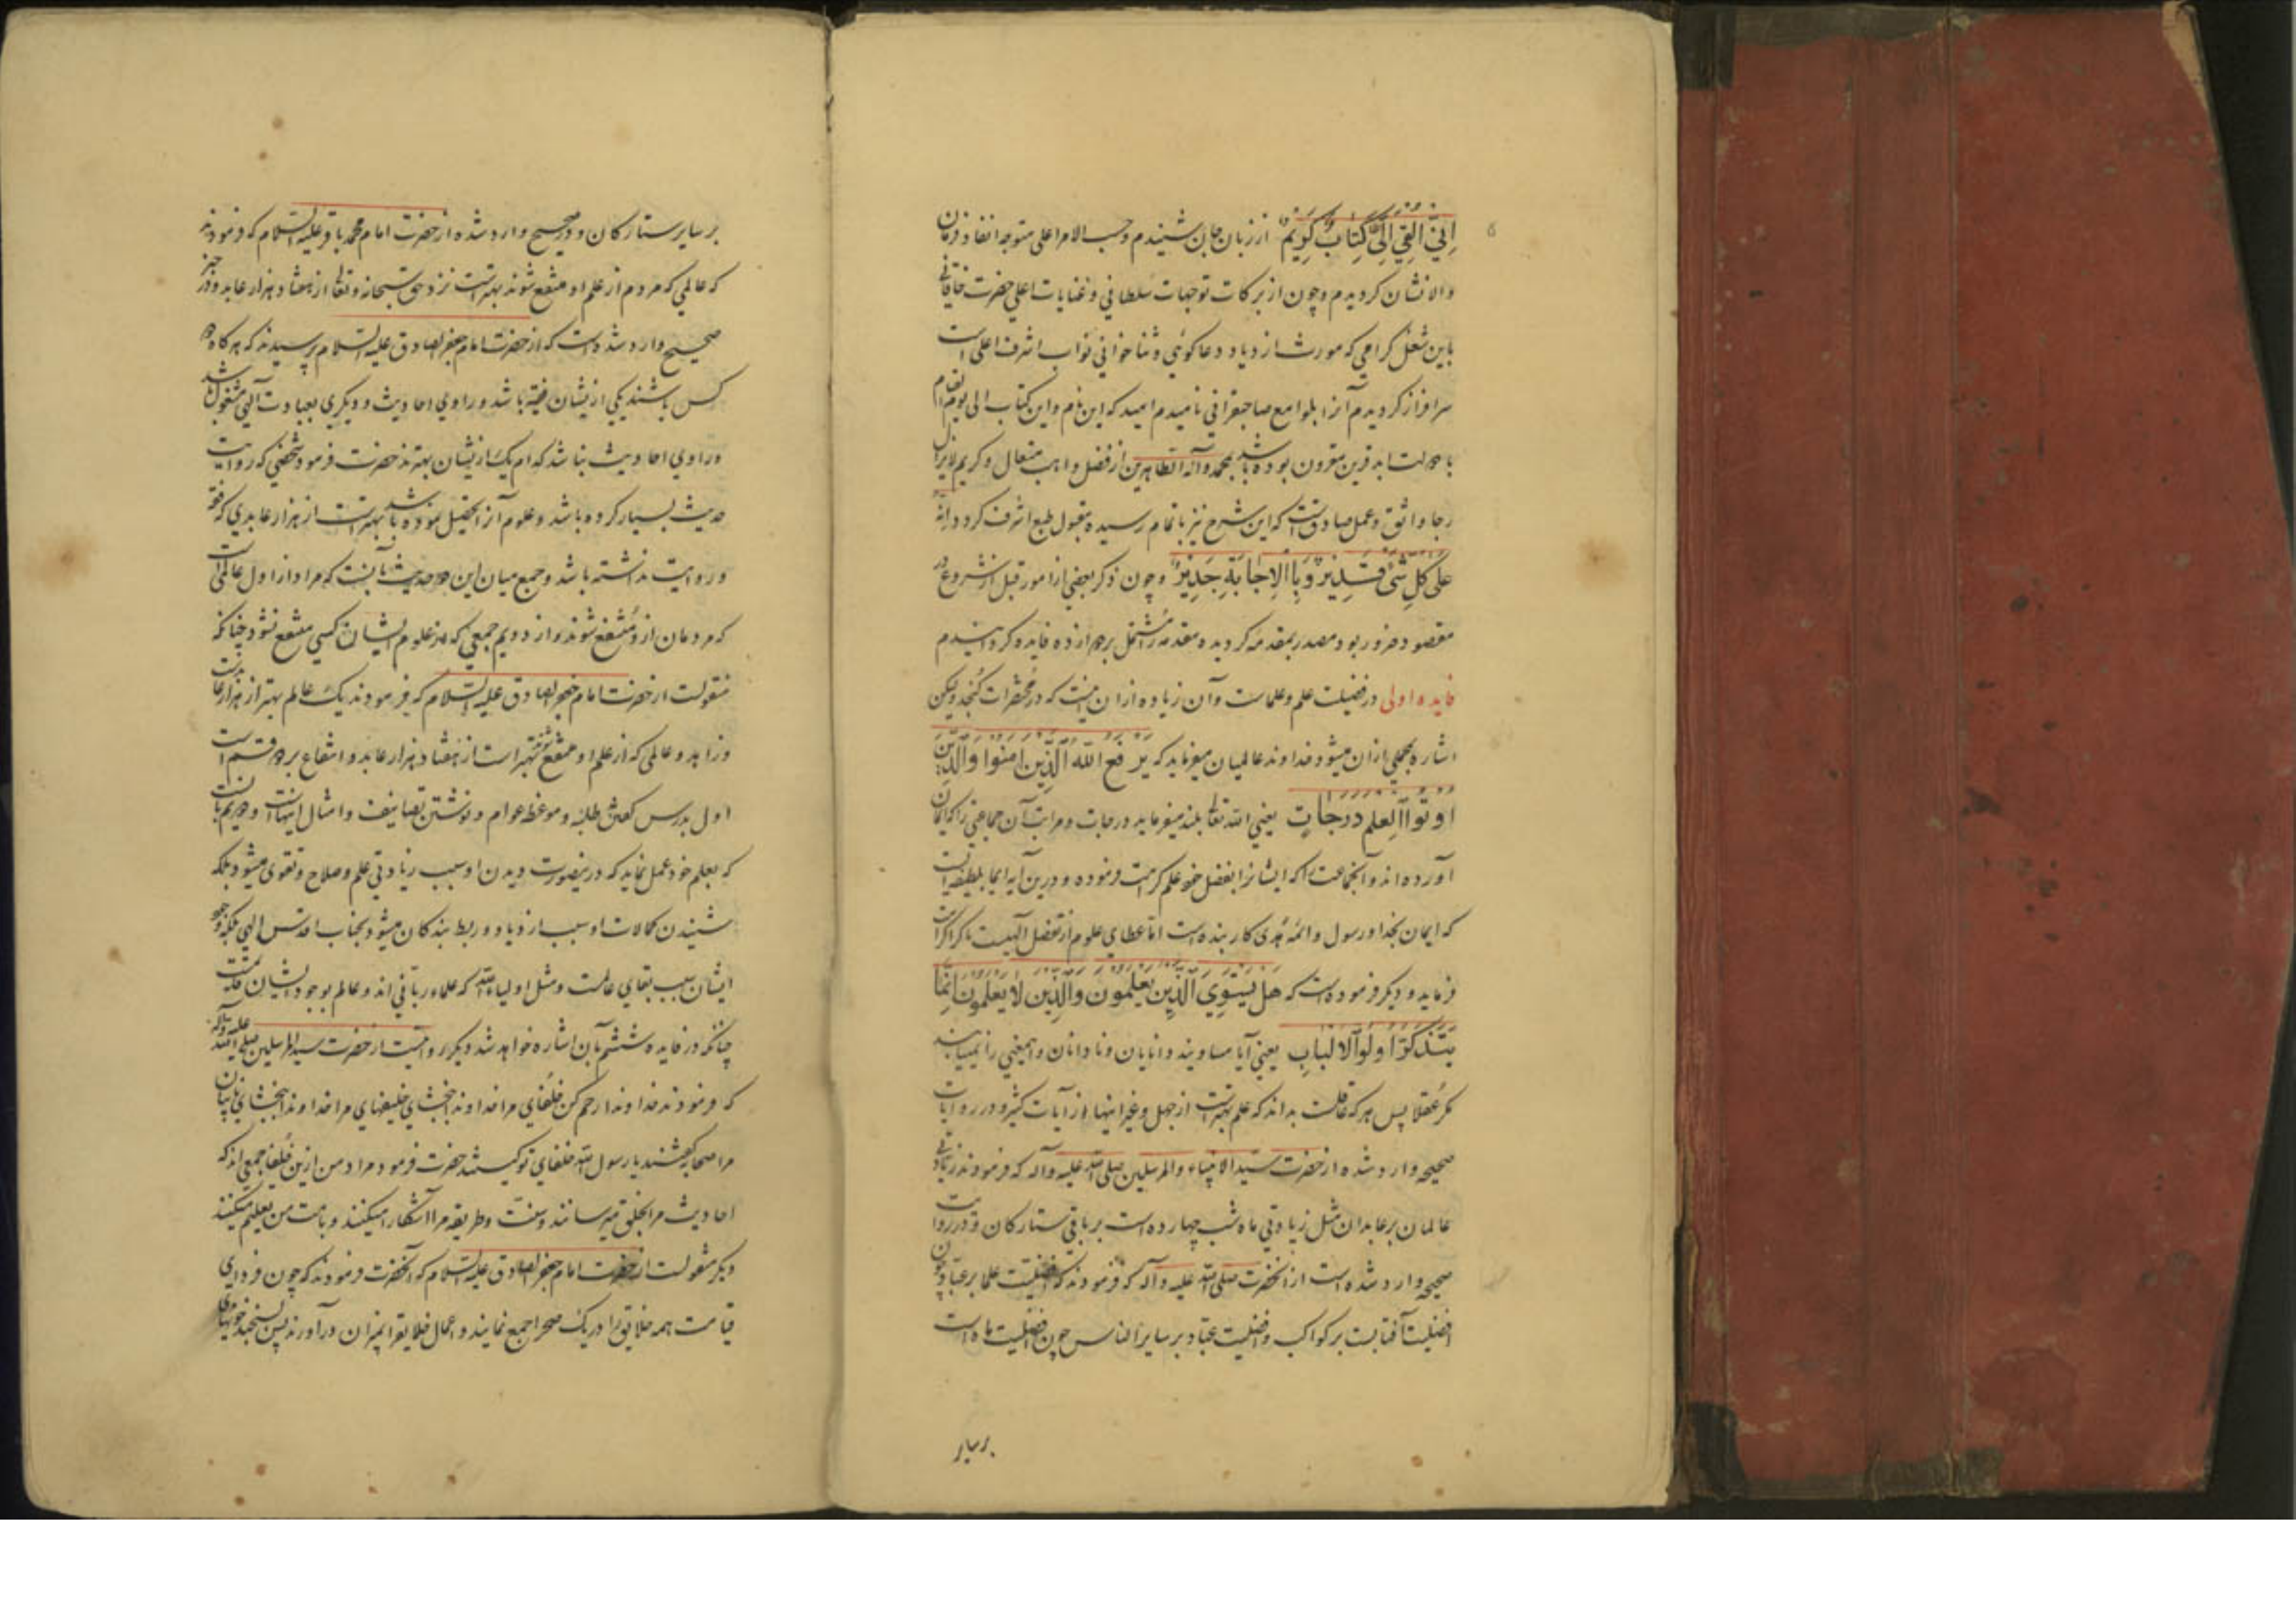 إِنِّي أُلْقِيَ إِلَيَّ كِتَابٌ كَرِيمٌ از زبان جهان شنیدم و حسب الامر اعلی متوجه انفاذ فرمان
والانشان کردیدم و چون از برکات توجهات سلطانی و عنایات اعلی حضرت خاقانی
باین شغل کرامی که مورث ازدیاد دعاکوئی و ثناخوانی نواب اشرف اعلی است
سرافراز کردیدم آنرا بلوامع صاحبقرانی نامیدم امید که این نام و این کتاب الی یوم القیام
با دولت ابد قرین مقرون بوده باشد بمحمد وآله الطاهرین از فضل واهب متعال و کریم لایزال
رجا واثق و عمل صادقست که این شرح نیز باتمام رسیده مقبول طبع اشرف کردد انه
عَلَى كُلِّ شَيْءٍ قَدِيرٌ وَبِالْإِجَابَةِ جَدِيرٌ و چون ذکر بعضی از امور قبل از شروع در
مقصود ضرور بود مصدر بمقدمه کردیده مقدمه را مشتمل بر دوازده فایده کردانیدم
فایده اولی در فضیلت علم و علماست و آن زیاده از ان نیست که در مختصرات کنجد ولیکن
اشاره مجملی از ان میشود خداوند عالمیان میفرماید که يَرْفَعِ اللَّهُ الَّذِينَ آمَنُوا وَالَّذِينَ
أُوتُوا الْعِلْمَ دَرَجَاتٍ یعنی الله تعا بلند میفرماید درجات و مراتب آن جماعتی را که ایمان
آورده اند و آنجماعت را که ایشانرا بفضل خود علم کرامت فرموده و درین آیه ایما بلطیفه ایست
که ایمان بخدا و رسول و ائمه هدی کار بنده است اما عطای علوم از تفضل الهیست تا کرا کرامت
فرماید و دیکر فرموده است که هَلْ يَسْتَوِي الَّذِينَ يَعْلَمُونَ وَالَّذِينَ لَا يَعْلَمُونَ إِنَّمَا
يَتَذَكَّرُ أُولُو الْأَلْبَابِ یعنی آیا مساویند دانایان و نادانان و این معنی را نمییابند
مکر عقلا پس هر که عاقلست بداند که علم بهتر است از جهل و غیر اینها از آیات کثیره و در روایات
صحیحه وارد شده از حضرت سید الانبیاء والمرسلین صلی الله علیه وآله که فرمودند زیادتی
عالمان بر عابدان مثل زیادتی ماه شب چهارده است بر باقی ستارکان و در روایت
صحیحه وارد شده است از آنحضرت صلی الله علیه وآله که فرمودند که افضلیت علما بر عباد چون
افضلیت آفتابست بر کواکب و افضلیت عباد بر سایر الناس چون افضلیت ماه است
بر سایر
بر سایر ستارکان و در صحیح وارد شده از حضرت امام محمد باقر علیه السلام که فرمودند
که عالمی که مردم از علم او منتفع شوند بهتر است نزد حق سبحانه و تعا از هفتاد هزار عابد و در خبر
صحیح وارد شده است که از حضرت امام جعفر الصادق علیه السلام پرسیدند که هرکاه دو
کس باشند یکی از یشان فقیه باشد و راوی احادیث و دیکری بعبادت الهی مشغول باشد
و راوی احادیث نباشد کدام یک از یشان بهترند حضرت فرمود شخصی که روایت
حدیث بسیار کرده باشد و علوم آنرا تحصیل نموده باشد بهتر است از هزار عابدی که فقه
و روایت نداشته باشد و جمع میان این دو حدیث بآنست که مراد از اول عالمی است
که مردمان از و منتفع شوند و از دویم جمعی که از علوم ایشان کسی منتفع نشود چنانکه
منقولست از حضرت امام جعفر الصادق علیه السلام که فرمودند یک عالم بهتر از هزار عابدست
و زاهد و عالمی که از علم او منتفع شوند بهتر است از هفتاد هزار عابد و انتفاع بر دو قسم است
اول بدرس کفتن طلبه و موعظه عوام و نوشتن تصانیف و امثال اینهاست و دویم بآنست
که بعلم خود عمل نماید که درینصورت دیدن او سبب زیادتی علم و صلاح و تقوی میشود بلکه
شنیدن کمالات او سبب ازدیاد ربط بندکان میشود بجناب اقدس الهی بلکه وجود
ایشان سبب بقای عالمست و مثل اولیاء الله که علماء ربانی اند و عالم بوجود ایشان قایمست
چنانکه در فایده ششم بآن اشاره خواهد شد دیکر روایتست از حضرت سید المرسلین صلی الله علیه وآله
که فرمودند خداوندا رحم کن خلفای مرا خداوندا ببخشای خلیفهای مرا خداوندا ببخشای نایبان
مرا صحابه کفتند یا رسول الله خلفای تو کیستند حضرت فرمود مراد من ازین خلفا جمعی اند که
احادیث مرا بخلق میرسانند و سنت و طریقه مرا آشکارا میکنند و بامت من تعلیم میکنند
دیکر منقولست از حضرت امام جعفر الصادق علیه السلام که آنحضرت فرمودند که چون فردای
قیامت همه خلایق را در یک صحرا جمع نمایند و اعمال خلایق را بمیزان درآورند پس بسنجند خونهای